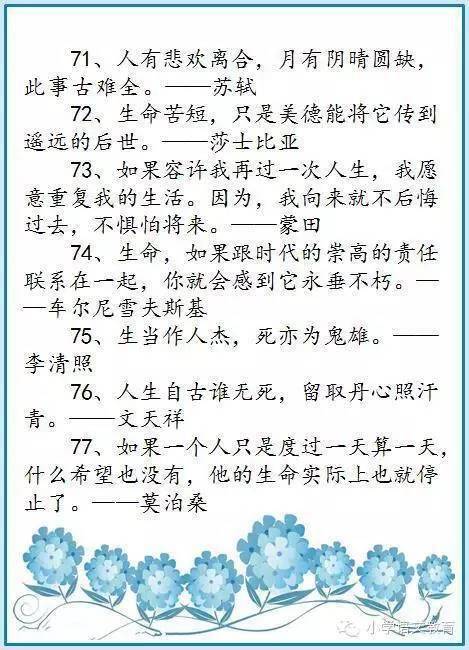 71、人有悲欢离合，月有阴晴圆缺，
此事古难全。——苏轼
72、生命苦短，只是美德能将它传到
遥远的后世。——莎士比亚
73、如果容许我再过一次人生，我愿
意重复我的生活。因为，我向来就不后悔
过去，不惧怕将来。——蒙田
74、生命，如果跟时代的崇高的责任
联系在一起，你就会感到它永垂不朽。—
—车尔尼雪夫斯基
75、生当作人杰，死亦为鬼雄。——
李清照
76、人生自古谁无死，留取丹心照汗
青。——文天祥
77、如果一个人只是度过一天算一天，
什么希望也没有，他的生命实际上也就停
止了。——莫泊桑
小学语文教育